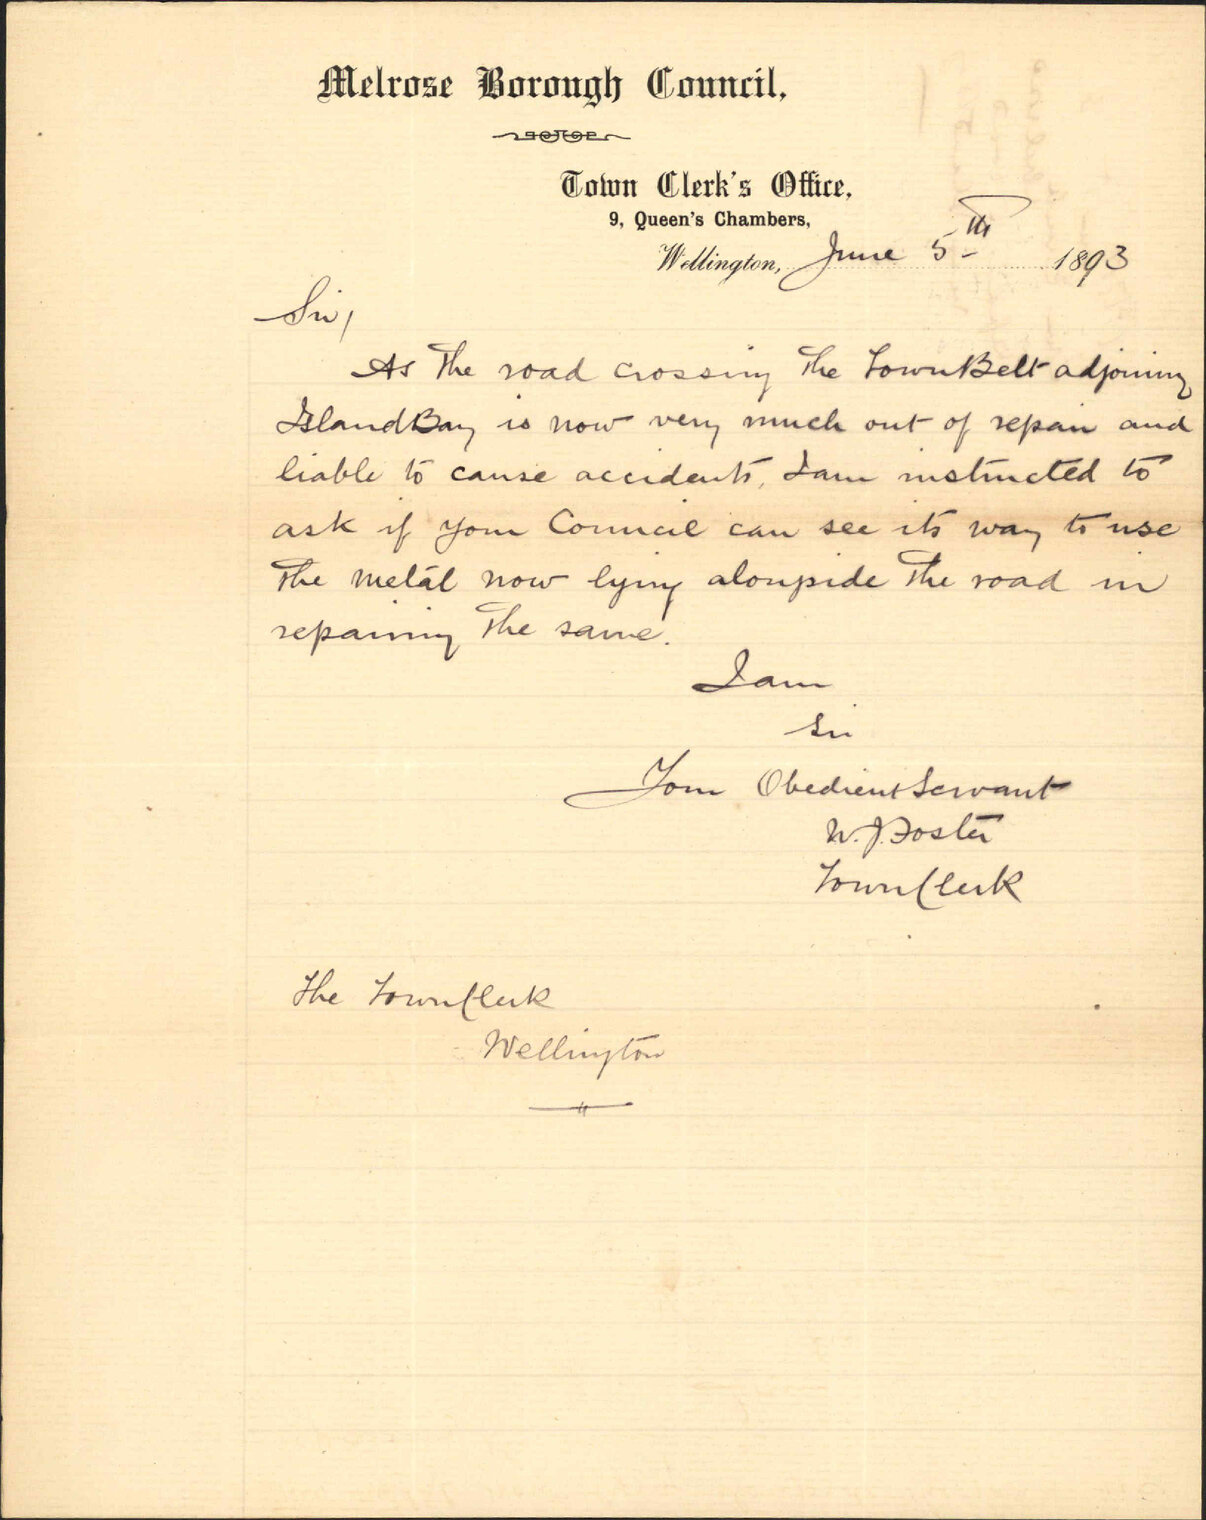 Melrose Borough Council,
Town Clerk's Office,
9, Queen's Chambers,
Wellington, June 5th 1893
Sir,
As the road crossing the Town Belt adjoining
Island Bay is now very much out of repair and
liable to cause accidents, I am instructed to
ask if your Council can see its way to use
the metal now lying alongside the road in
repairing the same.
I am
Sir
Your Obedient Servant
W. J. Foster
Town Clerk
The Town Clerk
Wellington